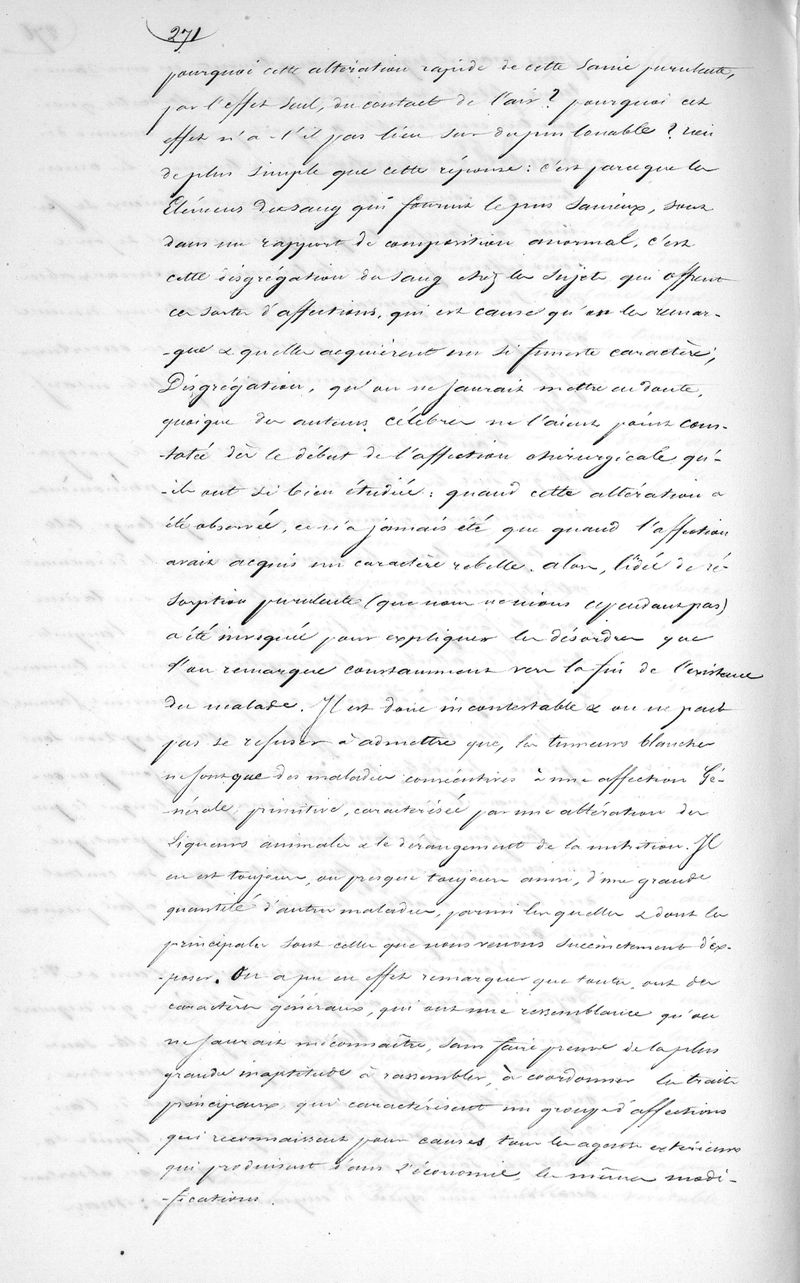 271
pourquoi cette altération rapide de cette sanie purulente,
par l'effet seul, du contact de l'air ? pourquoi cet
effet n'a-t'il pas lieu sur du pus louable ? rien
de plus simple que cette réponse : c'est parceque les
Elémens du sang qui fournit le pus sanieux, sont
dans un rapport de composition anormal, c'est
cette disgrégation du sang chez les sujets qui offrent
ces sortes d'affections, qui est cause qu'on les remar-
-que & quelles acquièrent un si funeste caractère ;
Disgrégation, qu'on ne saurait mettre en doute,
quoique des auteurs célèbres ne l'aient point cons-
-tatée dès le début de l'affection chirurgicale qu'-
-ils ont si bien étudiée : quand cette altération a
été observée, ce n'a jamais été que quand l'affection
avait acquis un caractère rebelle. alors, l'idée de ré-
sorption purulente (que nous ne nions cependant pas)
a été invoquée pour expliquer les désordres que
l'on remarque constamment vers la fin de l'existence
du malade. Il est donc incontestable & on ne peut
pas se refuser à admettre que, les tumeurs blanches
ne sont que des maladies consécutives à une affection Gé-
-nérale primitive, caractérisée par une altération des
Liqueurs animales & le dérangement de la nutrition. Il
en est toujours, ou presque toujours ainsi, d'une grande
quantité d'autres maladies, parmi lesquelles & dont les
principales sont celles que nous venons succinctement d'ex-
-poser. On a pu en effet remarquer que toutes, ont des
caractères généraux, qui ont une ressemblance qu'on
ne saurait méconnaître, sans faire preuve de la plus
grande inaptitude à rassembler, à coordonner les traits
principaux qui caractérisent un groupe d'affections
qui reconnaissent pour causes tous les agents extérieurs
qui produisent dans l'économie, les mêmes modi-
-fications.